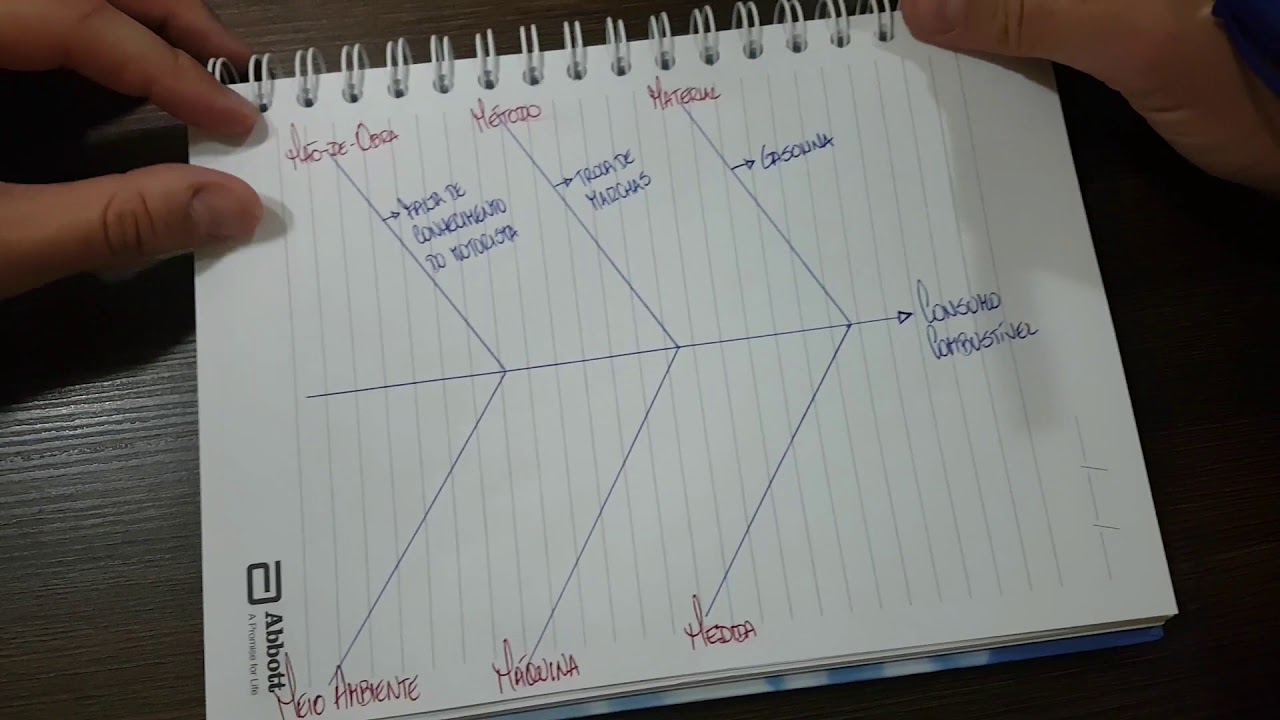 Mão-de-Obra
Método
Material
Falta de
conhecimento
do motorista
Troca de
marchas
Gasolina
Consumo
Combustível
Meio Ambiente
Máquina
Medida
Abbott
A Promise for Life